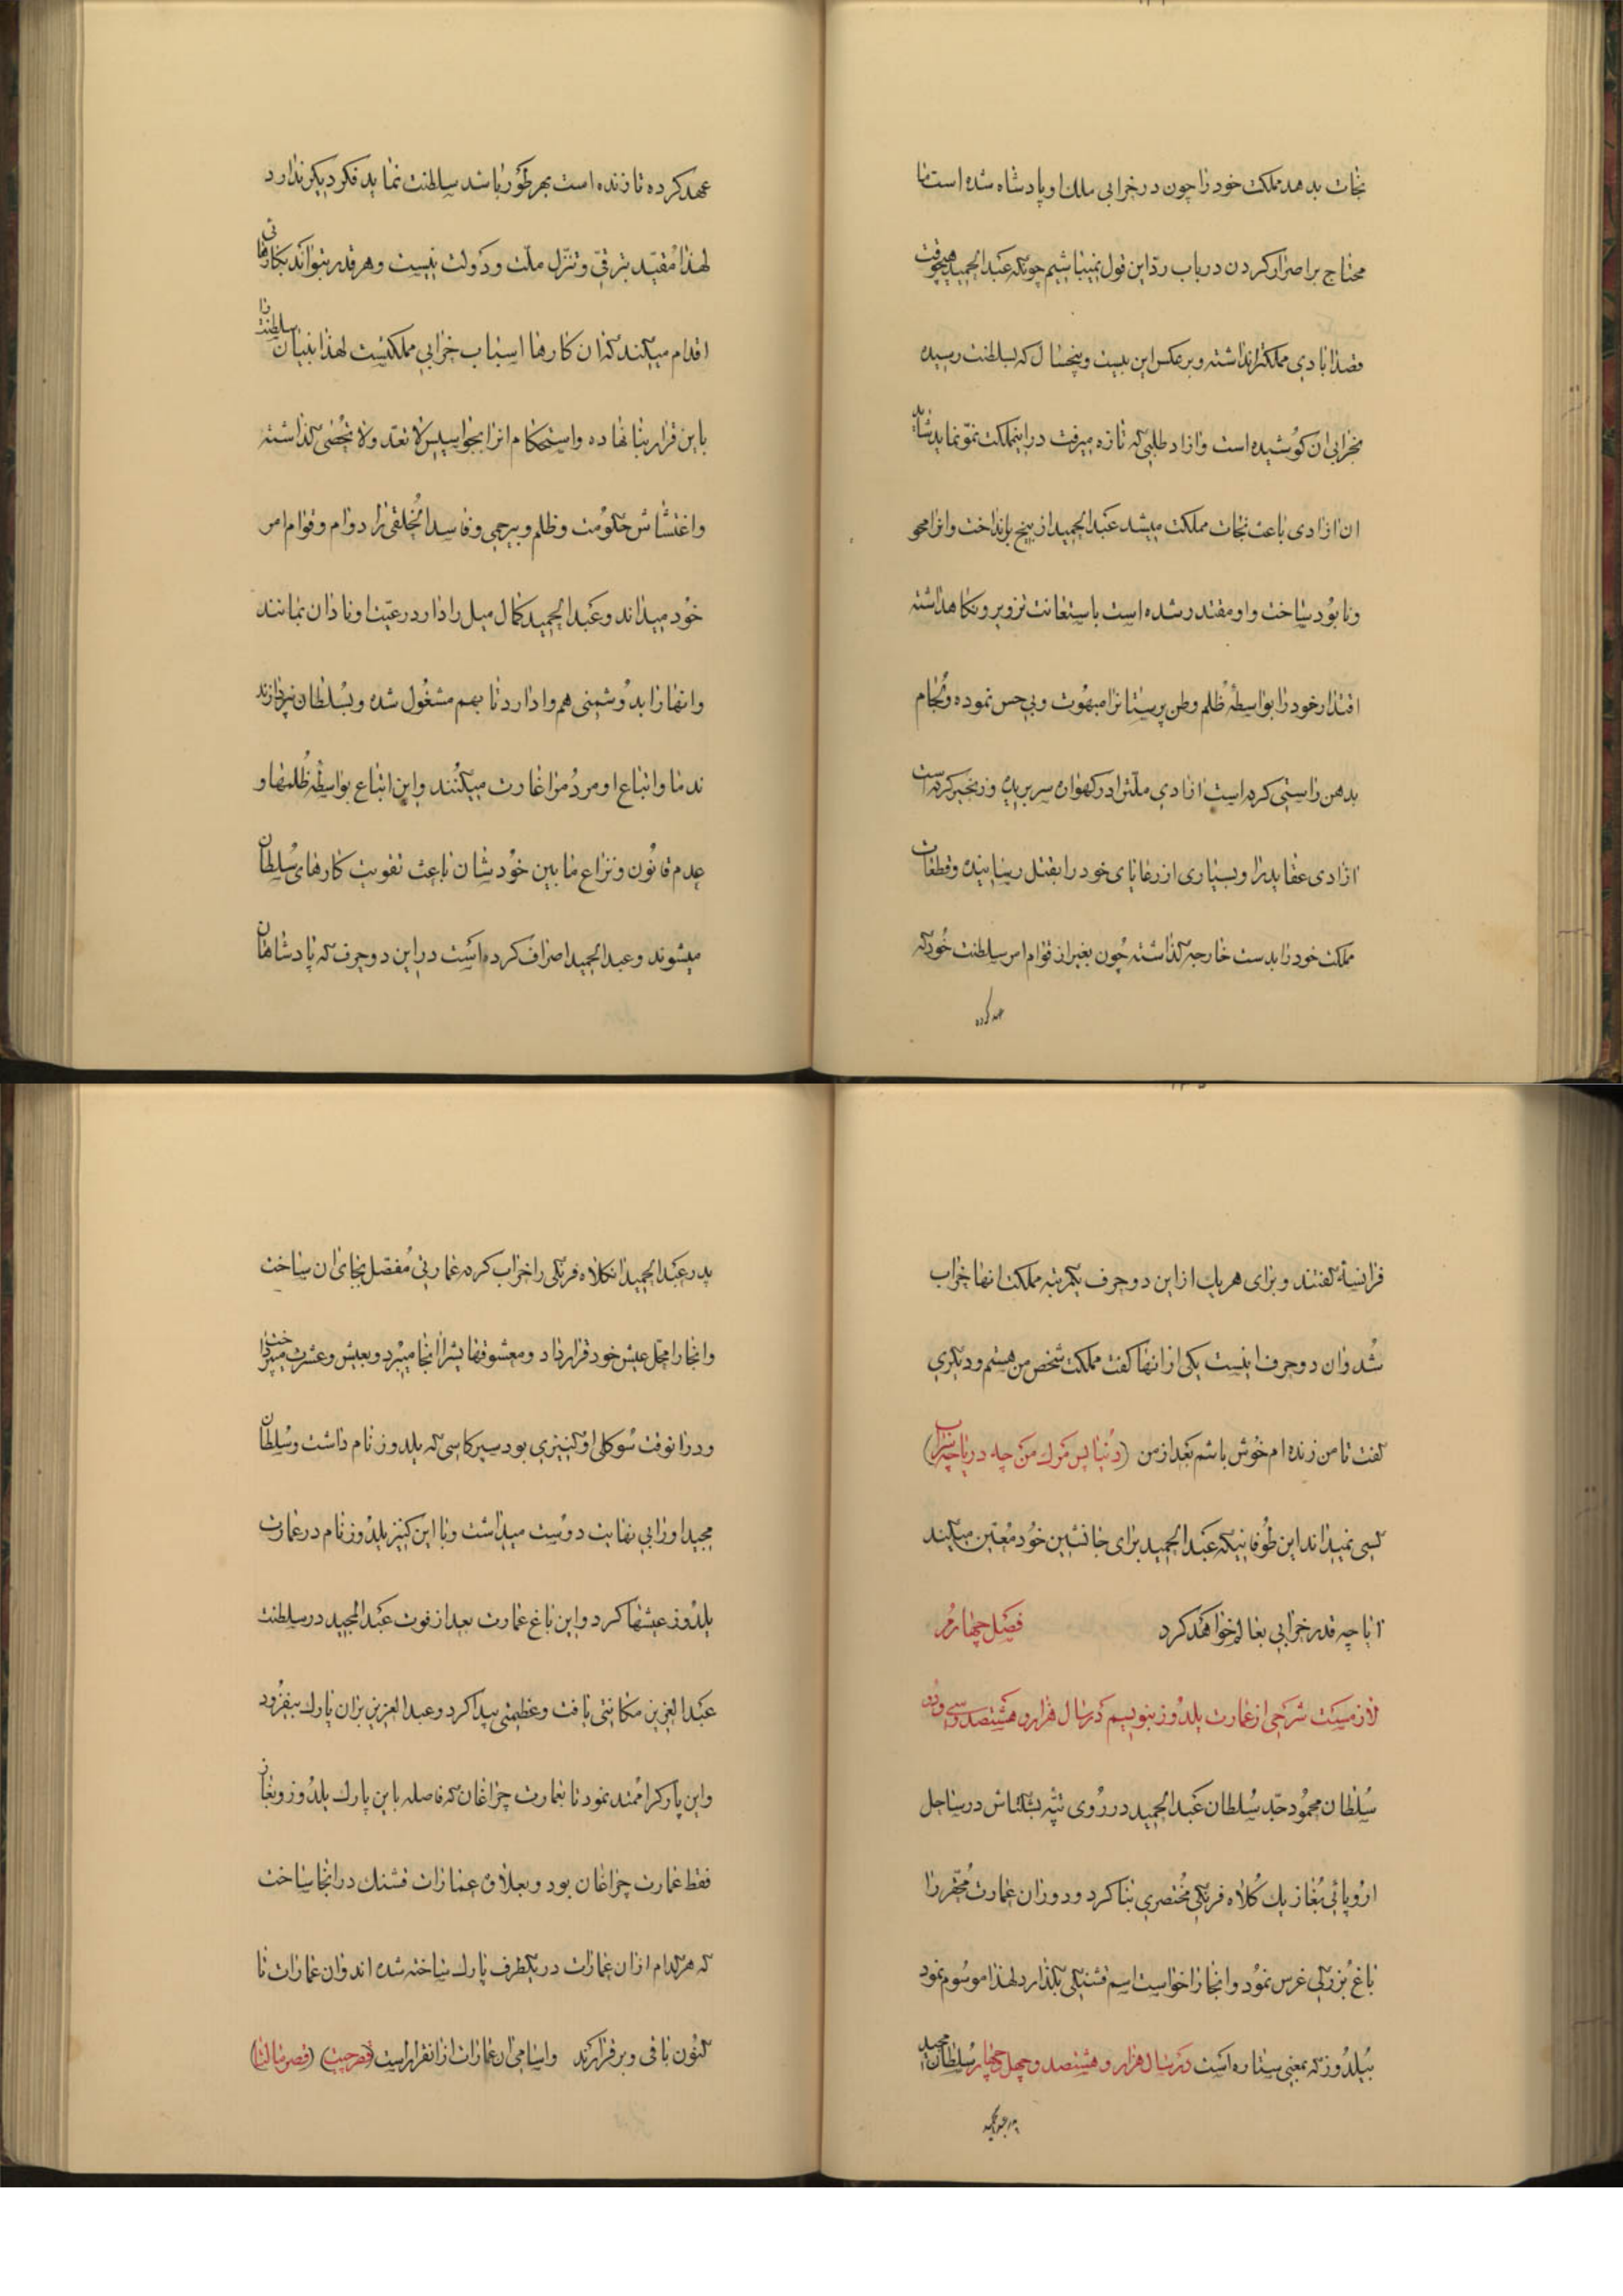 نجات بدهد مملکت خود را چون در خرابی ملک او پادشاه شده است ما
محتاج براصرار کردن در باب ردّ این قول نمیباشیم چونکه عبدالحمید هیچوقت
قصد ابادی مملکترا نداشته و برعکس این بیست و پنجسال که بسلطنت رسیده
بخرابی ان کوشیده است و ازاد طلبی که تازه میرفت در اینمملکت نموّ نماید شاید
ان ازادی باعث نجات مملکت میشد عبدالحمید از بیخ برانداخت و انرا محو
و نابود ساخت و او مقتدر شده است باستعانت تزویر و نکاهداشته
اقتدار خود را بواسطهٔ ظلم وطن پرستانرا مبهوت و بی حس نموده و لجام
بدهن راستی کرده است ازادی ملّترا در کهواره سر بریده و زنجیر کرده است
ازادی عقاید را و بسیاری از رعایای خود را بقتل رسانیده و قطعات
مملکت خود را بدست خارجه گذاشته چون بغیر از قوام امر سلطنت خود که
عهد کرده
عهد کرده تا زنده است بهر طور باشد سلطنت نماید فکر دیکر ندارد
لهذا مقیّد بترقی و تنزّل ملّت و دولت نیست و هر قدر بتواند بکارهائی
اقدام میکند که ان کارها اسباب خرابی مملکتست لهذا بنیان سلطنت را
باین قرار بنا نهاده و استحکام انرا بجواسیس لا تعدّ و لا تحصی گذاشته
و اغتشاش حکومت و ظلم و بیرحمی و فاسد الخلقی را دوام و قوام امر
خود میداند و عبدالحمید کمال میل را دارد رعیت او نادان بمانند
و انها را بدوشمنی هم وا دارد تا بهم مشغول شده و بسلطان نپردازند
ندما و اتباع او مردم را غارت میکنند و این اتباع بواسطهٔ ظلمها و
عدم قانون و نزاع مابین خودشان باعث تقویت کارهای سلطان
میشوند و عبدالحمید اصراف کرده است در این دو حرف که پادشاهان
فرانسه گفتند و برای هر یک از این دو حرف یکمرتبه مملکت انها خراب
شد و ان دو حرف اینست یکی از انها کفت مملکت شخص من هستم و دیکری
گفت تا من زنده ام خوش باشم بعد از من (دنیا پس مرک من چه دریا چه سراب)
کسی نمیداند این طوفانیکه عبدالحمید برای جانشین خود معیّن میکند
ایا چه قدر خرابی بعالم خواهد کرد فصل چهارم
لازمست شرحی از عمارت یلدوز بنویسیم در سال هزار و هشتصد و سی و دو
سلطان محمود جدّ سلطان عبدالحمید در روی تپه بشکتاش در ساحل
اروپائی بغاز یک کلاه فرنکی مختصری بنا کرد و دور ان عمارت محقر را
باغ بزرکی غرس نمود و انجا را خواست اسم قشنکی بگذارد لهذا موسوم نمود
بیلدوز که بمعنی ستاره است در سال هزار و هشتصد و چهل و چهار سلطان مجید
پدر عبدالحمید
پدر عبدالحمید انکلاه فرنکی را خراب کرده عمارتی مفصل بجای ان ساخت
و انجا را محل عیش خود قرار داد و معشوقهایشرا انجا میبرد و بعیش و عشرت میپرداخت
و در انوقت سوکلی او کنیزی بود سیرکاسی که یلدوز نام داشت و سلطان
مجید او را بی نهایت دوست میداشت و با این کنیز یلدوز نام در عمارت
یلدوز عیشها کرد و این باغ عمارت بعد از فوت عبدالمجید در سلطنت
عبدالعزیز مکانتی یافت و عظمتی پیدا کرد و عبدالعزیز بران پارک بیفزود
و این پارکرا ممتد نمود تا بعمارت چراغان که فاصله باین پارک یلدوز و بغاز
فقط عمارت چراغان بود و بعلاوه عمارات قشنک در انجا ساخت
که هر کدام از ان عمارات در یکطرف پارک ساخته شده اند و ان عمارات تا
کنون باقی و برقرارند و اسامی ان عمارات از انقرار است (قصر چیت) (قصر مالتا)